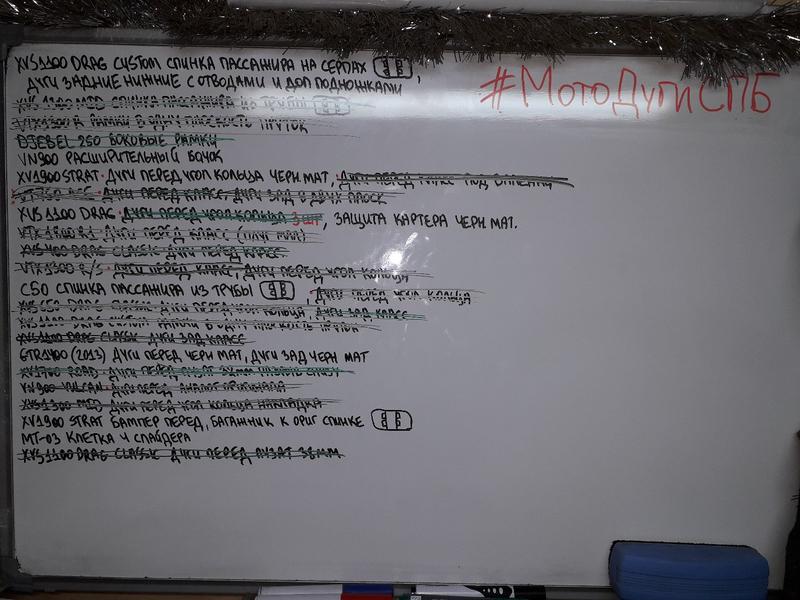 XVS1100 DRAG CUSTOM СПИНКА ПАССАЖИРА НА СЕРГАХ
ДУГИ ЗАДНИЕ НИЖНИЕ С ОТВОДАМИ И ДОП ПОДНОЖКАМИ
#МотоДугиСПБ
СПИНКА ПАССАЖИРА ИЗ ТРУБЫ
VTX1300 R РАМКИ В ОДНУ ПЛОСКОСТЬ ПРУТОК
DJEBEL 250 БОКОВЫЕ РАМКИ
VN900 РАСШИРИТЕЛЬНЫЙ БАЧОК
XV1900 STRAT ДУГИ ПЕРЕД УГОЛ КОЛЬЦА ЧЕРН МАТ, ДУГИ ПЕРЕД
VT750 ДУГИ ПЕРЕД КЛАСС, ДУГИ ЗАД В ДВУХ ПЛОСК
XVS1100 DRAG ДУГИ ПЕРЕД УГОЛ КОЛЬЦА 3 ШТ, ЗАЩИТА КАРТЕРА ЧЕРН МАТ.
ДУГИ ПЕРЕД КЛАСС
XVS400 DRAG CLASSIC ДУГИ ПЕРЕД КЛАСС
VTX1300 R/S ДУГИ ПЕРЕД КЛАСС, ДУГИ ПЕРЕД УГОЛ КОЛЬЦА
C50 СПИНКА ПАССАЖИРА ИЗ ТРУБЫ, ДУГИ ПЕРЕД УГОЛ КОЛЬЦА
XVS650 DRAG CLASSIC ДУГИ ПЕРЕД УГОЛ КОЛЬЦА, ДУГИ ЗАД КЛАСС
XVS1100 DRAG CUSTOM РАМКИ В ОДНУ ПЛОСКОСТЬ ПРУТОК
XVS1100 DRAG CLASSIC ДУГИ ЗАД КЛАСС
GTR1400 (2013) ДУГИ ПЕРЕД ЧЕРН МАТ, ДУГИ ЗАД ЧЕРН МАТ
XV1700 ROAD ДУГИ ПЕРЕД ПУЗАТ 32ММ
VN900 VULCAN ДУГИ ПЕРЕД АНАЛОГ ОРИГИНАЛА
XVS1300 MID ДУГИ ПЕРЕД УГОЛ КОЛЬЦА НАКЛАДКА
XV1900 STRAT БАМПЕР ПЕРЕД, БАГАЖНИК К ОРИГ СПИНКЕ
MT-03 КЛЕТКА 4 СЛАЙДЕРА
XVS1100 DRAG CLASSIC ДУГИ ПЕРЕД ПУЗАТ 38ММ